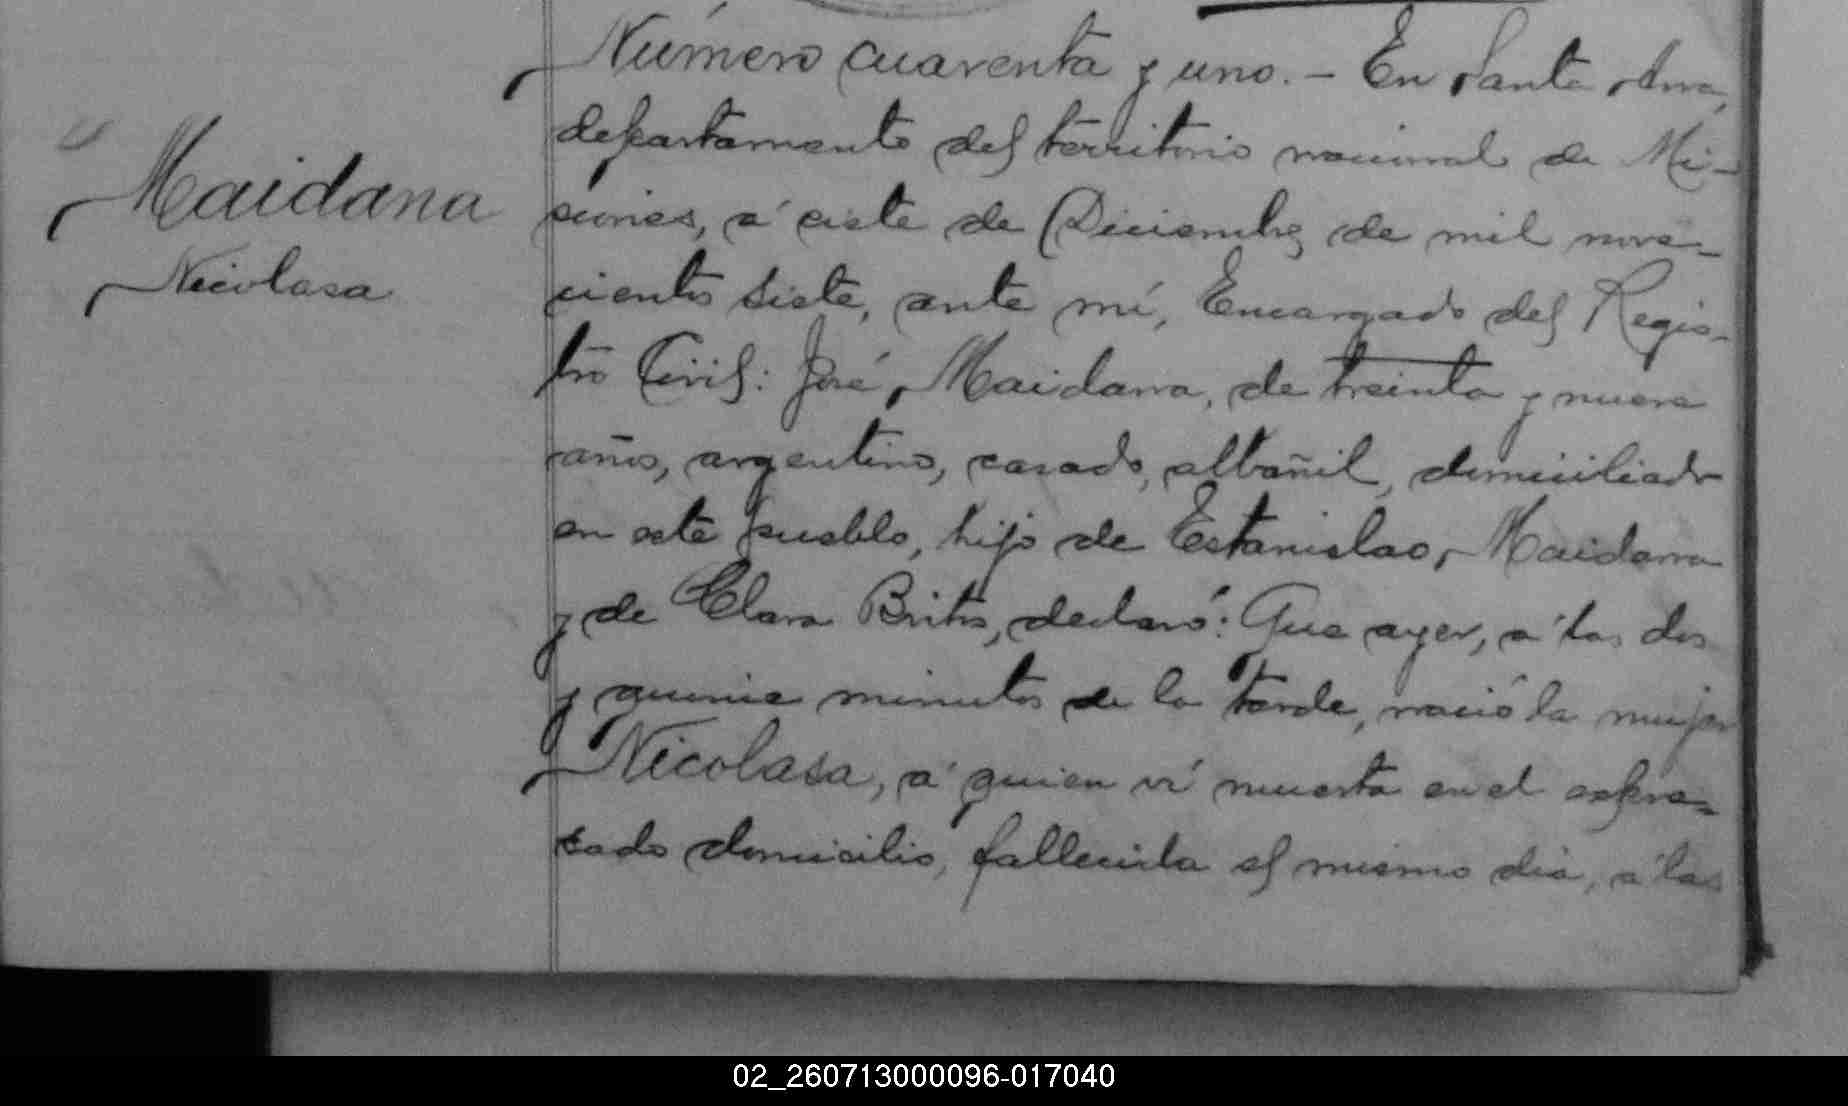 Maidana
Nicolasa
Número cuarenta y uno. - En Santa Ana,
departamento del territorio nacional de Mi-
siones, á siete de Diciembre de mil nove-
cientos siete, ante mí, Encargado del Regis-
tro Civil: José Maidana, de treinta y nueve
años, argentino, casado, albañil, domiciliado
en este pueblo, hijo de Estanislao Maidana
y de Clara Brites, declaró: Que ayer, á las dos
y quince minutos de la tarde, nació la mujer
Nicolasa, á quien ví muerta en el expre-
sado domicilio, fallecida el mismo dia, á las
02_260713000096-017040